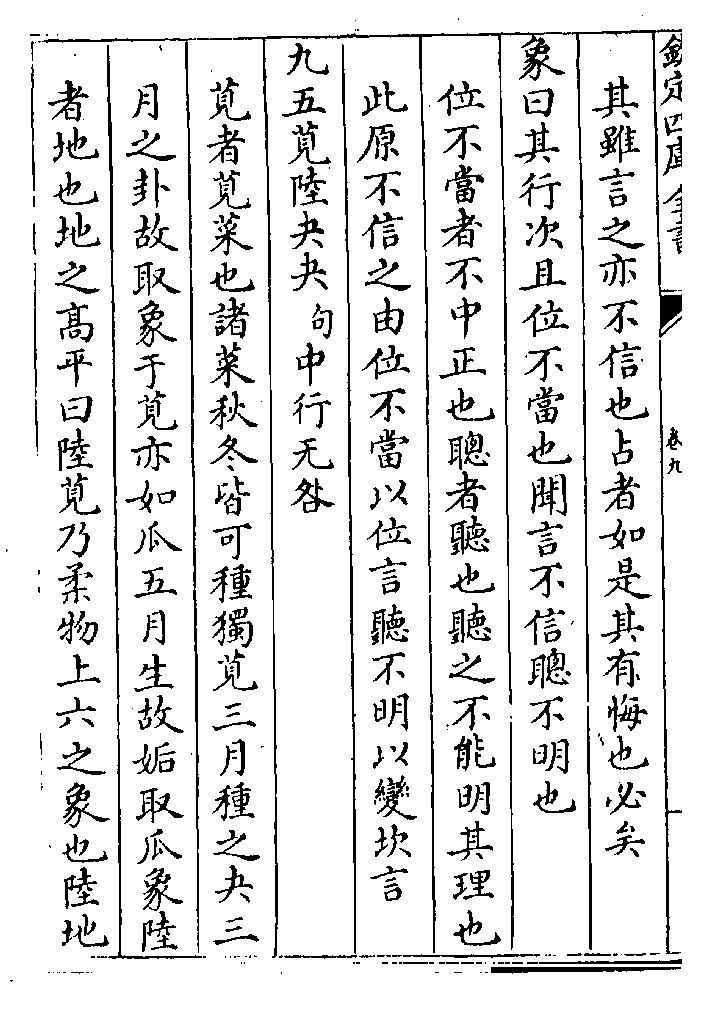 欽定四庫全書
卷九
其雖言之亦不信也占者如是其有悔也必矣
象曰其行次且位不當也聞言不信聰不明也
位不當者不中正也聰者聽也聽之不能明其理也
此原不信之由位不當以位言聽不明以變坎言
九五莧陸夬夬句中行无咎
莧者莧菜也諸菜秋冬皆可種獨莧三月種之夬三
月之卦故取象于莧亦如瓜五月生故姤取瓜象陸
者地也地之高平曰陸莧乃柔物上六之象也陸地